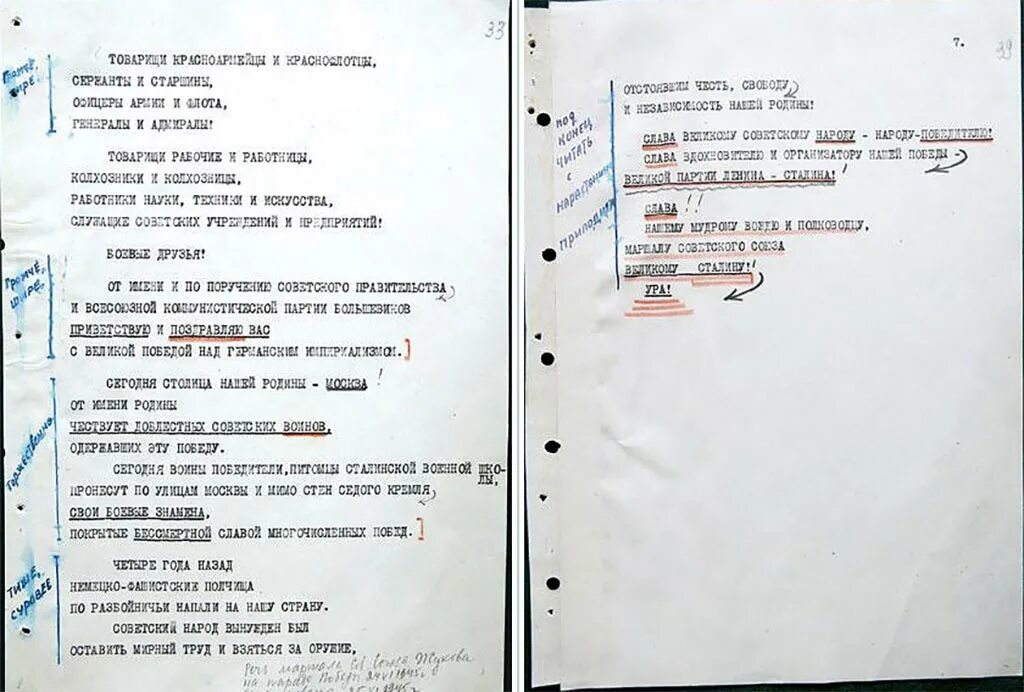 33
ТОВАРИЩИ КРАСНОАРМЕЙЦЫ И КРАСНОФЛОТЦЫ,
Громче,
шире.
СЕРЖАНТЫ И СТАРШИНЫ,
ОФИЦЕРЫ АРМИИ И ФЛОТА,
ГЕНЕРАЛЫ И АДМИРАЛЫ!
ТОВАРИЩИ РАБОЧИЕ И РАБОТНИЦЫ,
КОЛХОЗНИКИ И КОЛХОЗНИЦЫ,
РАБОТНИКИ НАУКИ, ТЕХНИКИ И ИСКУССТВА,
СЛУЖАЩИЕ СОВЕТСКИХ УЧРЕЖДЕНИЙ И ПРЕДПРИЯТИЙ!
БОЕВЫЕ ДРУЗЬЯ!
Громче,
шире.
ОТ ИМЕНИ И ПО ПОРУЧЕНИЮ СОВЕТСКОГО ПРАВИТЕЛЬСТВА
И ВСЕСОЮЗНОЙ КОММУНИСТИЧЕСКОЙ ПАРТИИ БОЛЬШЕВИКОВ
ПРИВЕТСТВУЮ И ПОЗДРАВЛЯЮ ВАС
С ВЕЛИКОЙ ПОБЕДОЙ НАД ГЕРМАНСКИМ ИМПЕРИАЛИЗМОМ.]
СЕГОДНЯ СТОЛИЦА НАШЕЙ РОДИНЫ - МОСКВА !
ОТ ИМЕНИ РОДИНЫ
ЧЕСТВУЕТ ДОБЛЕСТНЫХ СОВЕТСКИХ ВОИНОВ,
ОДЕРЖАВШИХ ЭТУ ПОБЕДУ.
Торжественно
СЕГОДНЯ ВОИНЫ ПОБЕДИТЕЛИ, ПИТОМЦЫ СТАЛИНСКОЙ ВОЕННОЙ ШКО-
ЛЫ,
ПРОНЕСУТ ПО УЛИЦАМ МОСКВЫ И МИМО СТЕН СЕДОГО КРЕМЛЯ
СВОИ БОЕВЫЕ ЗНАМЕНА,
ПОКРЫТЫЕ БЕССМЕРТНОЙ СЛАВОЙ МНОГОЧИСЛЕННЫХ ПОБЕД.]
ЧЕТЫРЕ ГОДА НАЗАД
Тише,
суровее
НЕМЕЦКО-ФАШИСТСКИЕ ПОЛЧИЩА
ПО РАЗБОЙНИЧЬИ НАПАЛИ НА НАШУ СТРАНУ.
СОВЕТСКИЙ НАРОД ВЫНУЖДЕН БЫЛ
ОСТАВИТЬ МИРНЫЙ ТРУД И ВЗЯТЬСЯ ЗА ОРУЖИЕ,
Речь маршала Сов. Союза Жукова
на параде Победы 24/VI 1945 г.
7.
39
ОТСТОЯВШИМ ЧЕСТЬ, СВОБОДУ
И НЕЗАВИСИМОСТЬ НАШЕЙ РОДИНЫ!
под
конец
читать
с
нарастанием
СЛАВА ВЕЛИКОМУ СОВЕТСКОМУ НАРОДУ - НАРОДУ-ПОБЕДИТЕЛЮ!
СЛАВА ВДОХНОВИТЕЛЮ И ОРГАНИЗАТОРУ НАШЕЙ ПОБЕДЫ -
ВЕЛИКОЙ ПАРТИИ ЛЕНИНА - СТАЛИНА!!
СЛАВА !!
НАШЕМУ МУДРОМУ ВОЖДЮ И ПОЛКОВОДЦУ,
МАРШАЛУ СОВЕТСКОГО СОЮЗА
ВЕЛИКОМУ СТАЛИНУ!!
УРА!